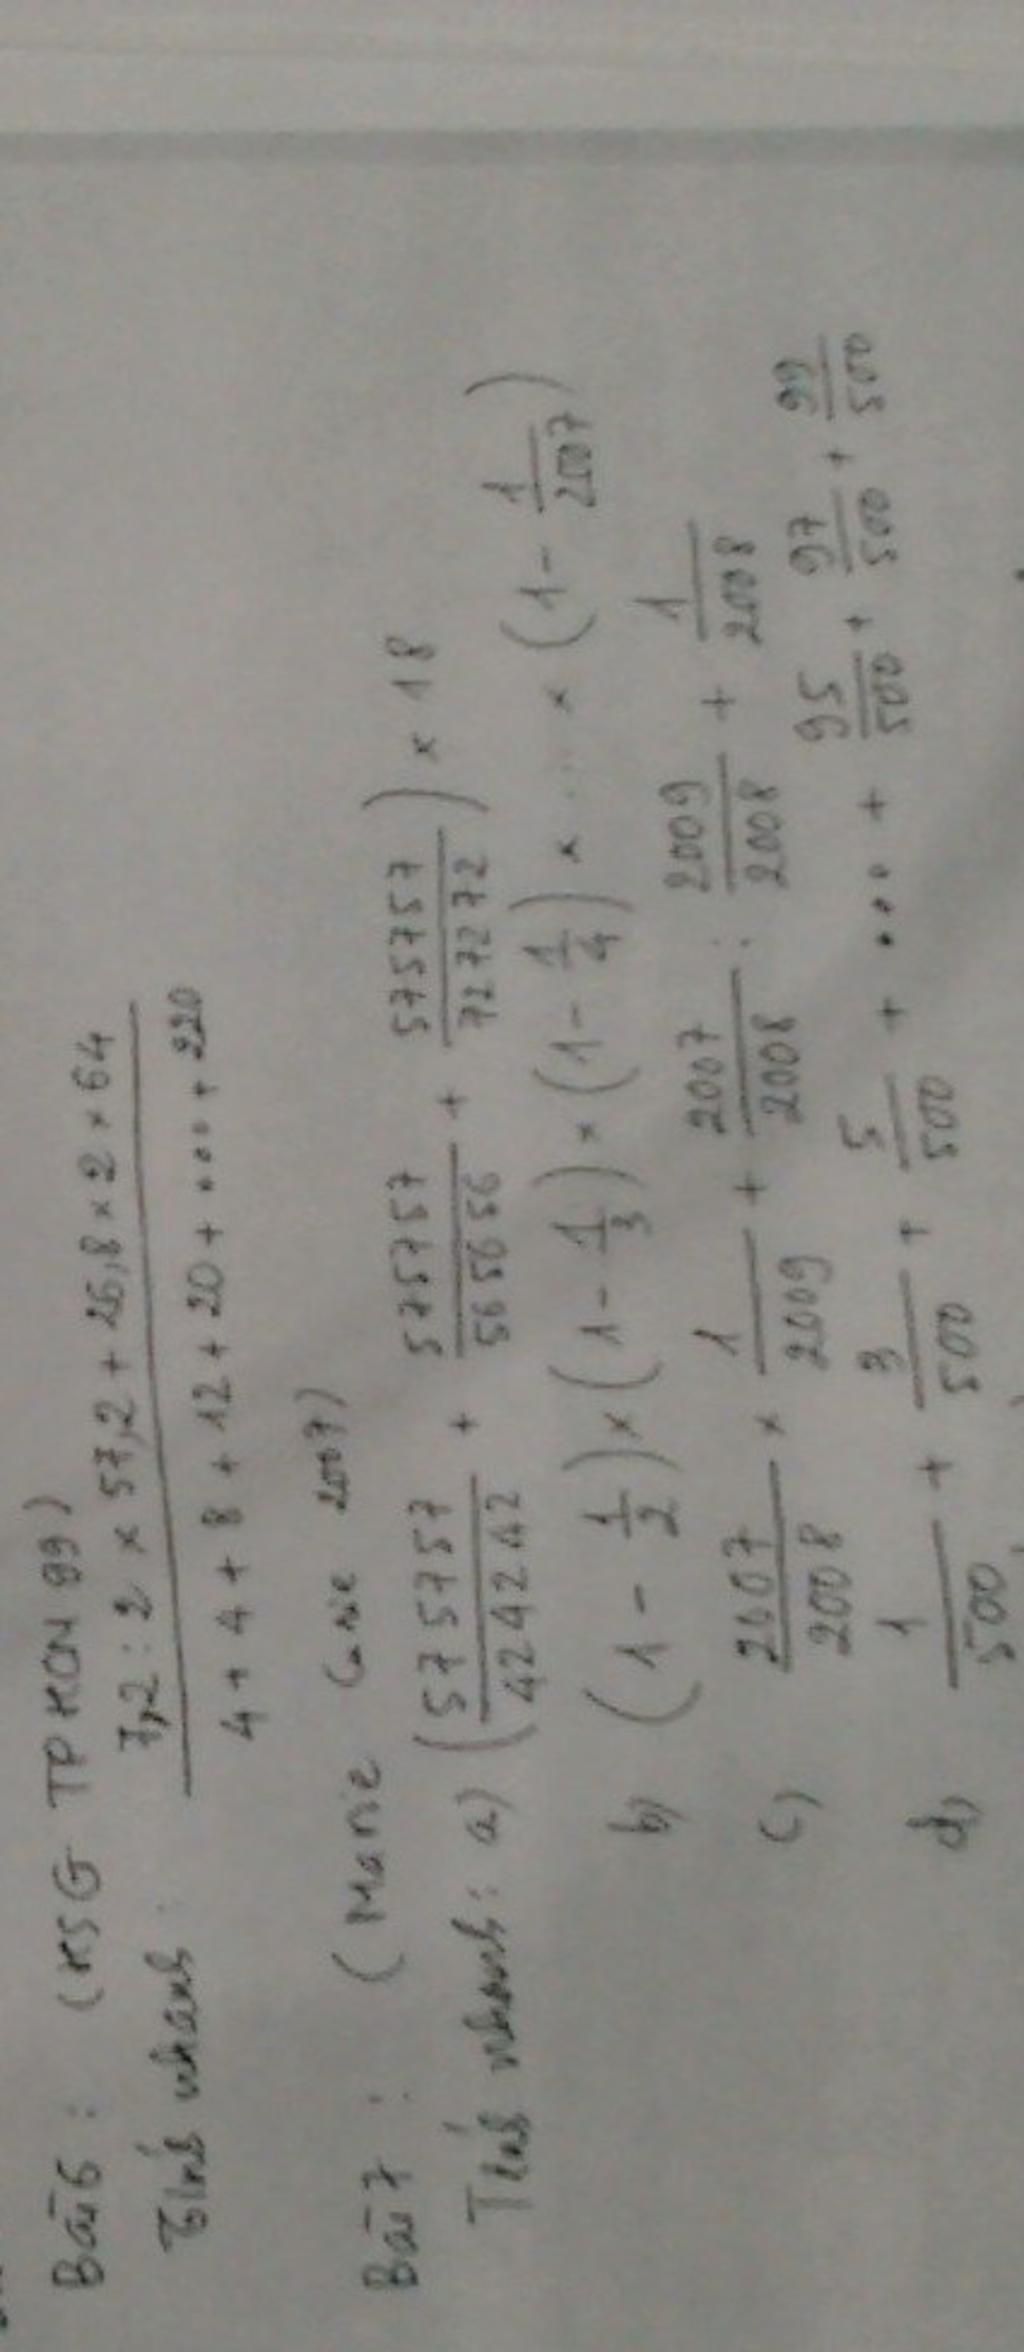 Bài 6 : (HSG TP HCM 99)
Tính nhanh : 7,2 : 2 × 57,2 + 28,6 × 2 × 64
4 + 4 + 8 + 12 + 20 + ... + 220
Bài 7 : ( Marie Curie 2007)
Tính nhanh : a) ( 575757/424242 + 575757/565656 + 575757/727272 ) × 18
b) (1 - 1/2) × (1 - 1/3) × (1 - 1/4) × .... × (1 - 1/2007)
c) 2007/2008 × 1/2009 + 2007/2008 : 2009/2008 + 1/2008
d) 1/500 + 3/500 + 5/500 + ... + 95/500 + 97/500 + 99/500